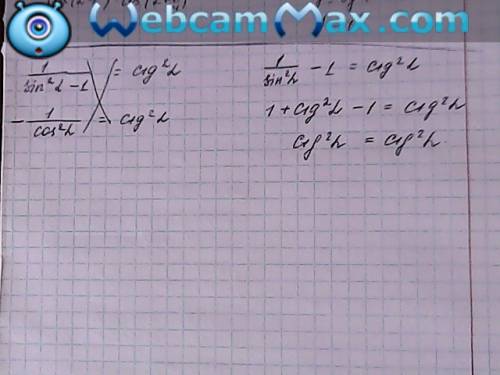 WebcamMax.com
1/(sin²α - 1) = ctg²α
- 1/cos²α = ctg²α
1/sin²α - 1 = ctg²α
1 + ctg²α - 1 = ctg²α
ctg²α = ctg²α.